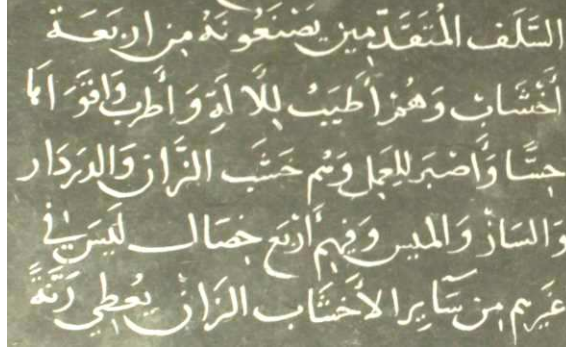 السَّلَف المُتَقَدِّمين يَصْنَعُونَهُ مِن اربَعَة
أَخْشَاب وَهُمْ أَطيَبُ لِلْآلَةِ وَأَطرب وَاقوَا لها
حِسًّا وَأَصْبَر لِلعِمَل وَهُم خَشَب الزَّان وَالدَردَار
وَالسَاز وَالميس وَفيهِم أَرْبَع خِصَال لَيسَ في
غَيرِهِم مِن سَآيِر الأَخشَاب الزَان يُعطِي رَنَّةً